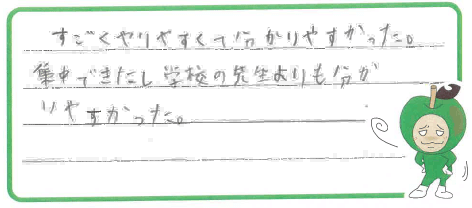 すごくやりやすくて分かりやすかった。
集中できたし学校の先生よりも分か
りやすかった。